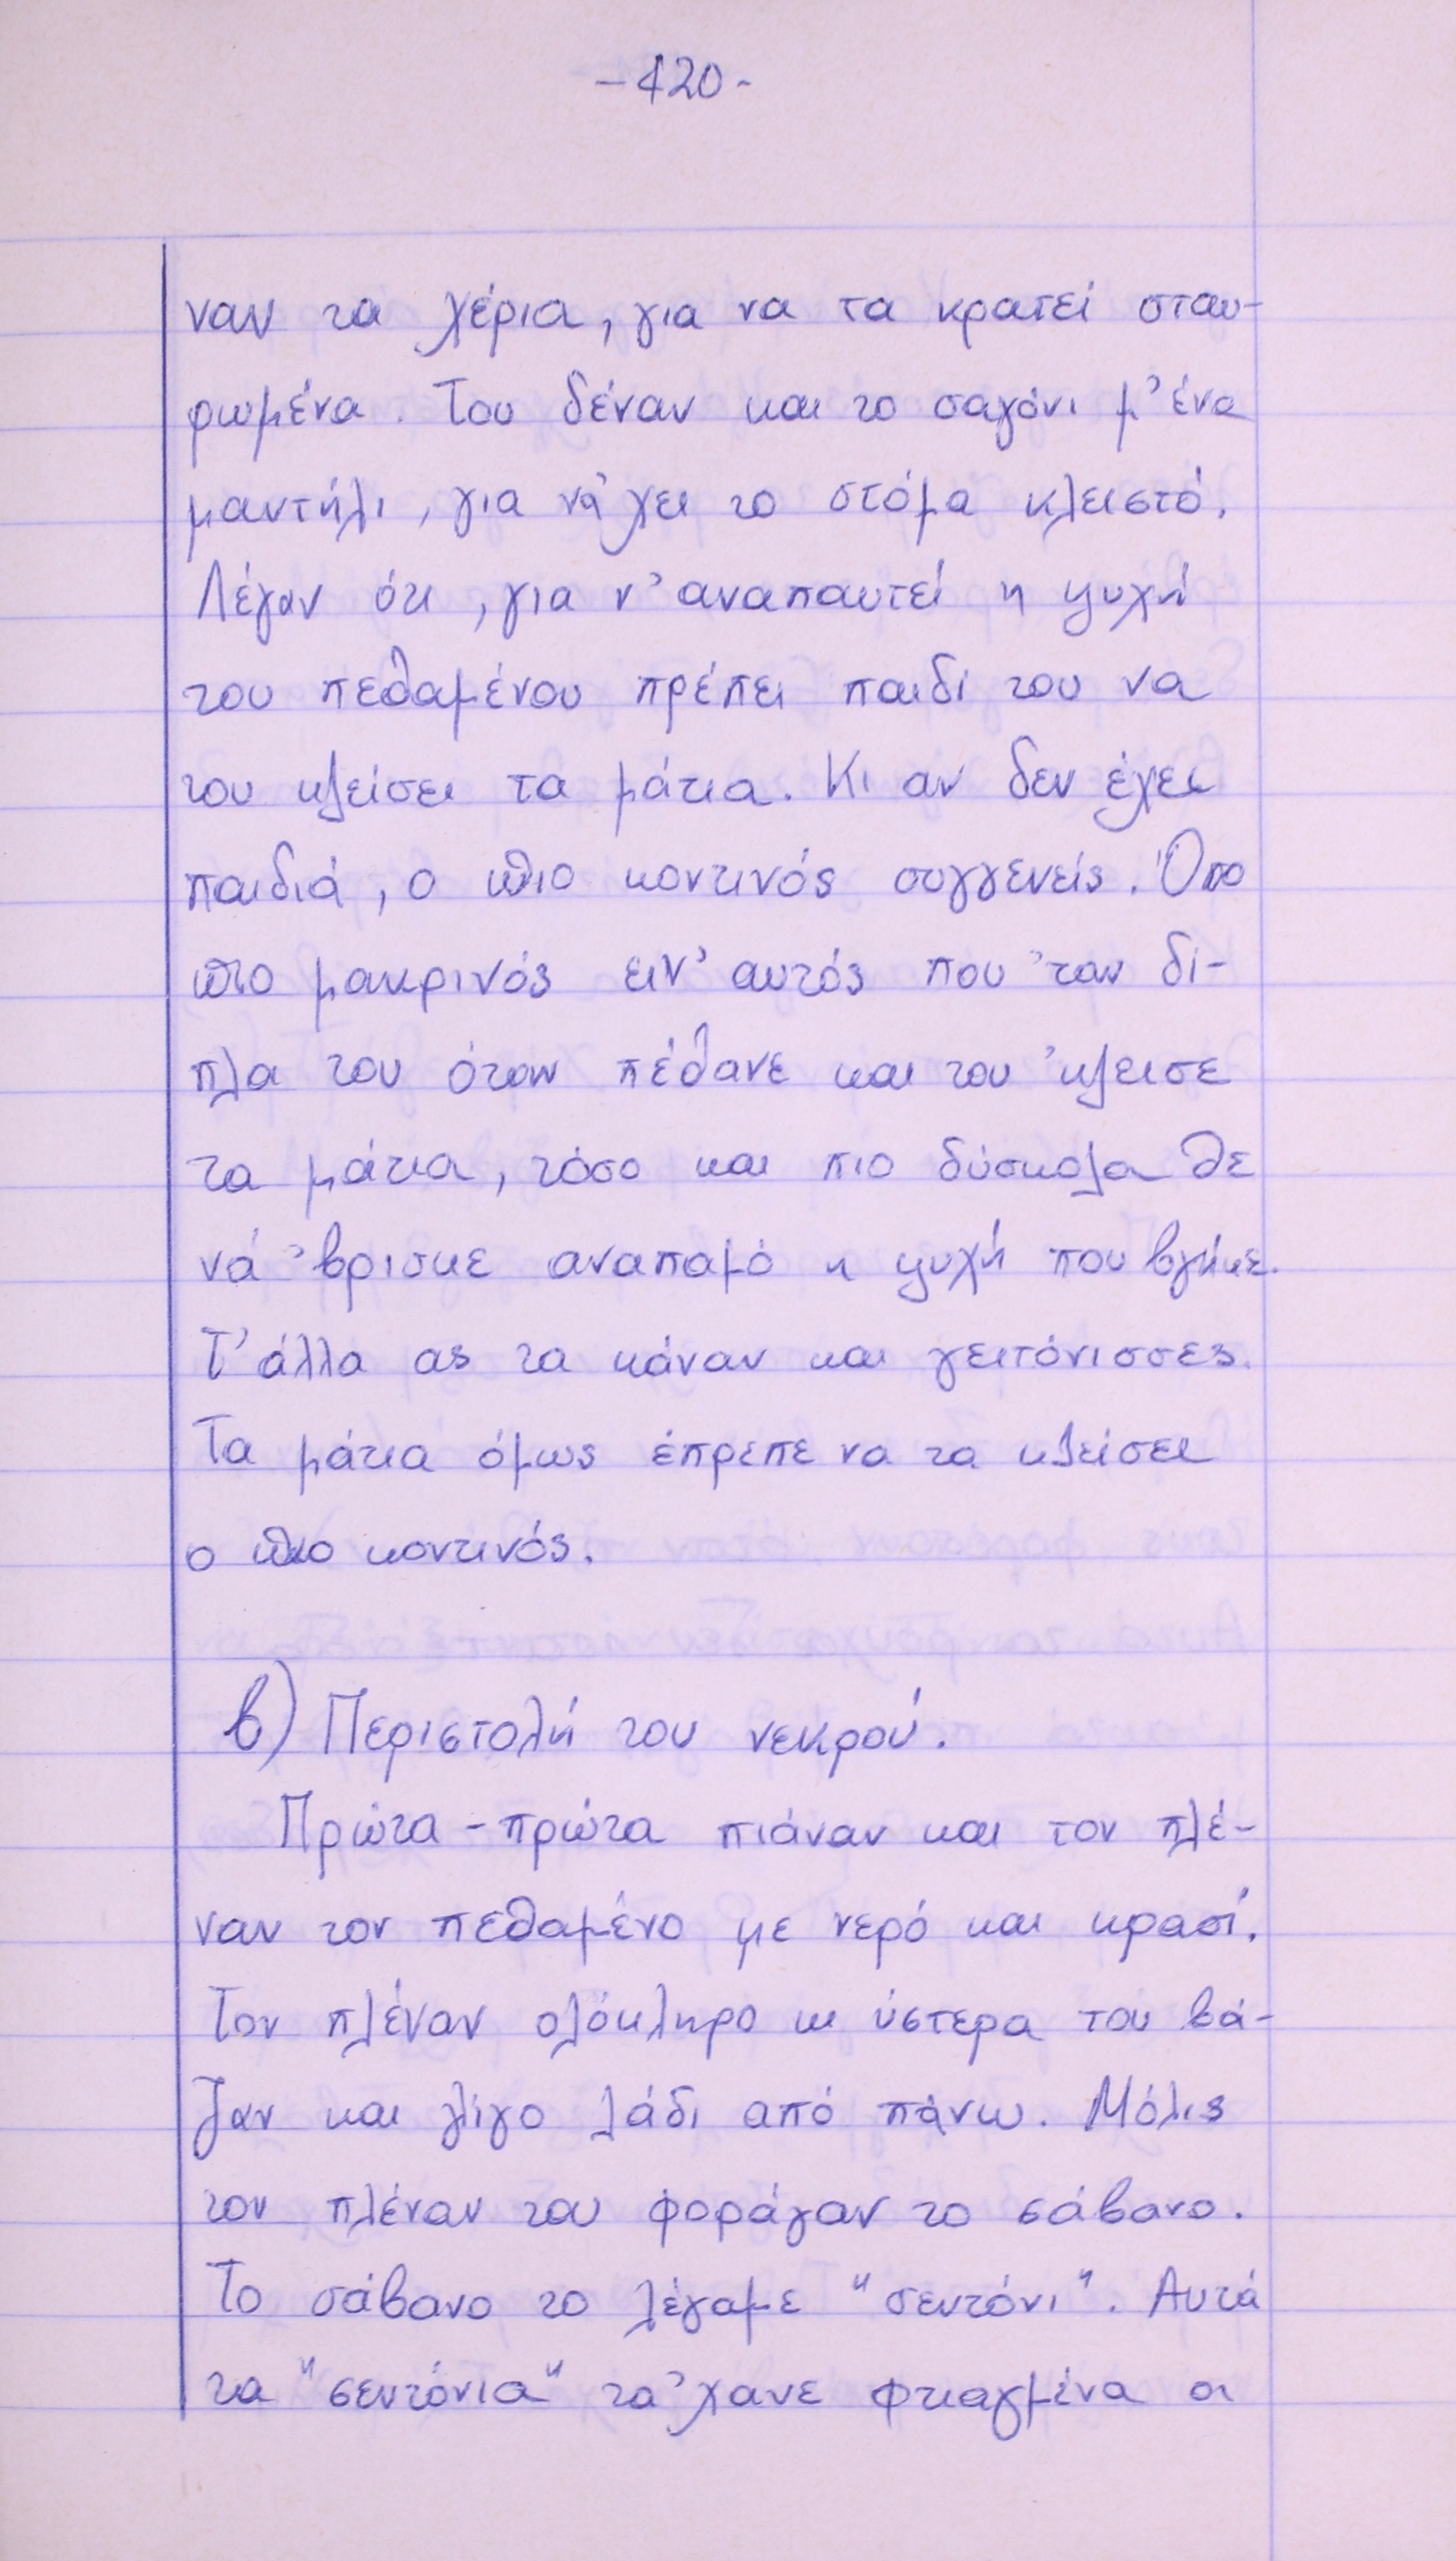 -420-
ναν τα χέρια, για να τα κρατεί σταυ-
ρωμένα. Του δέναν και το σαγόνι μ' ένα
μαντήλι, για νά 'χει το στόμα κλειστό.
Λέγαν ότι, για ν' αναπαυτεί η ψυχή
του πεθαμένου πρέπει παιδί του να
του κλείσει τα μάτια. Κι αν δεν έχει
παιδιά, ο πιο κοντινός συγγενείς. Όπο
πιο μακρινός ειν' αυτός που 'ταν δί-
πλα του όταν πέθανε και του 'κλεισε
τα μάτια, τόσο και πιο δύσκολα θε
νά 'βρισκε αναπαμό η ψυχή που βγήκε.
Τ' άλλα ας τα κάναν και γειτόνισσες.
Τα μάτια όμως έπρεπε να τα κλείσει
ο πιο κοντινός.
β) Περιστολή του νεκρού.
Πρώτα-πρώτα πιάναν και τον πλέ-
ναν τον πεθαμένο με νερό και κρασί.
Τον πλέναν ολόκληρο κι ύστερα του βά-
ζαν και λίγο λάδι από πάνω. Μόλις
τον πλέναν του φοράγαν το σάβανο.
Το σάβανο το λέγαμε "σεντόνι". Αυτά
τα "σεντόνια" τα 'χανε φτιαγμένα οι